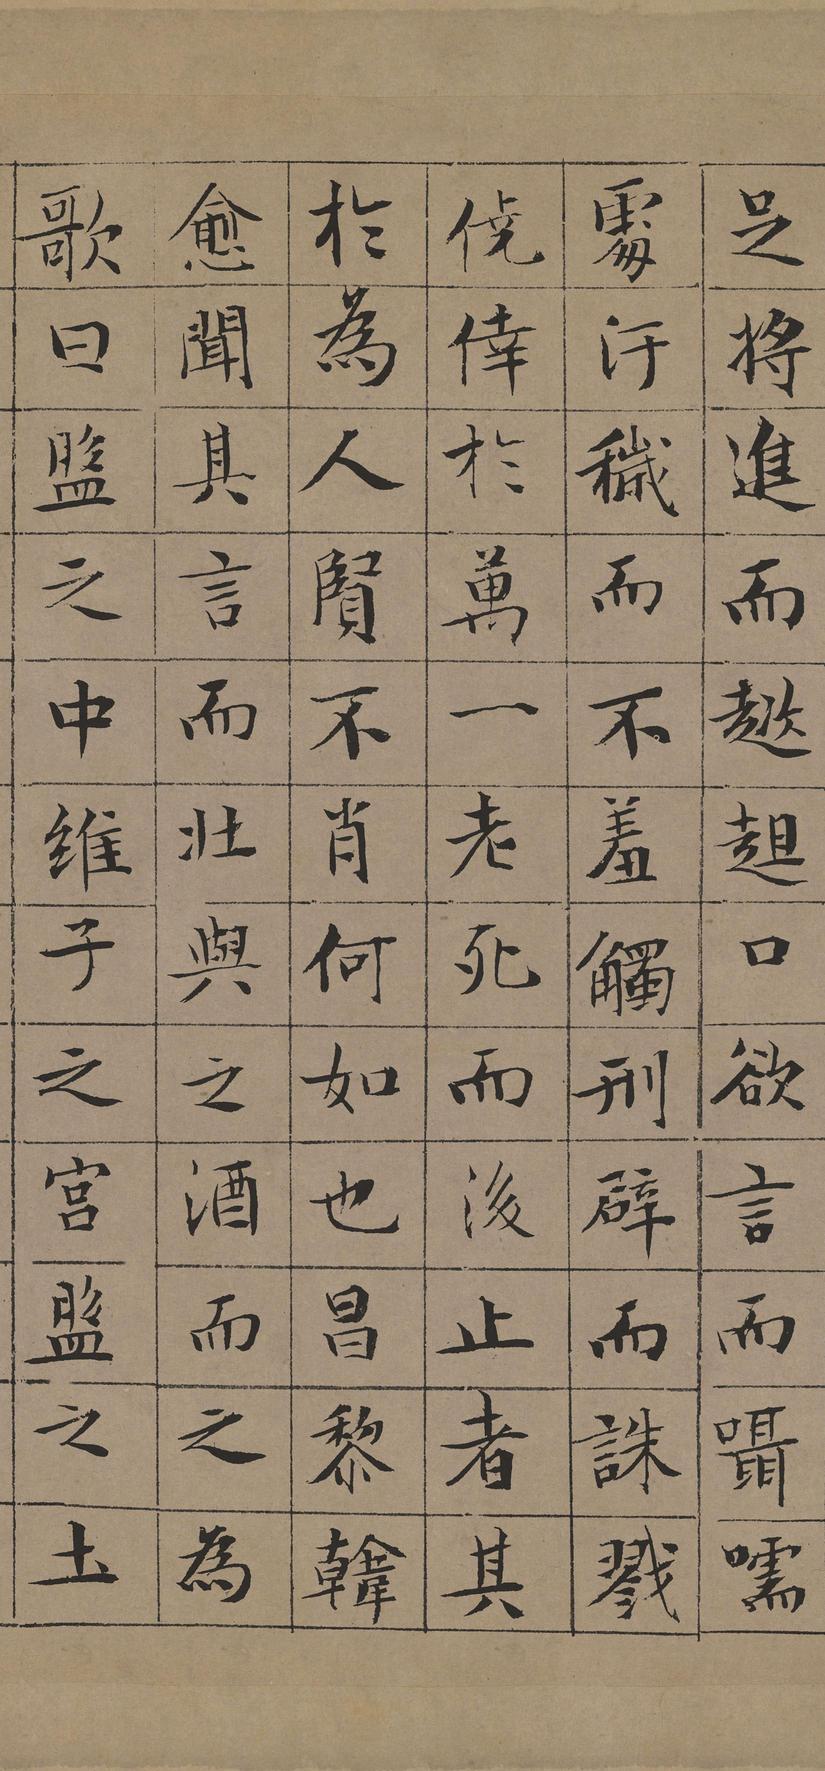 足將進而趑趄口欲言而囁嚅
處汙穢而不羞觸刑辟而誅戮
僥倖於萬一老死而後止者其
於為人賢不肖何如也昌黎韓
愈聞其言而壯與之酒而之為
歌曰盤之中維子之宮盤之土